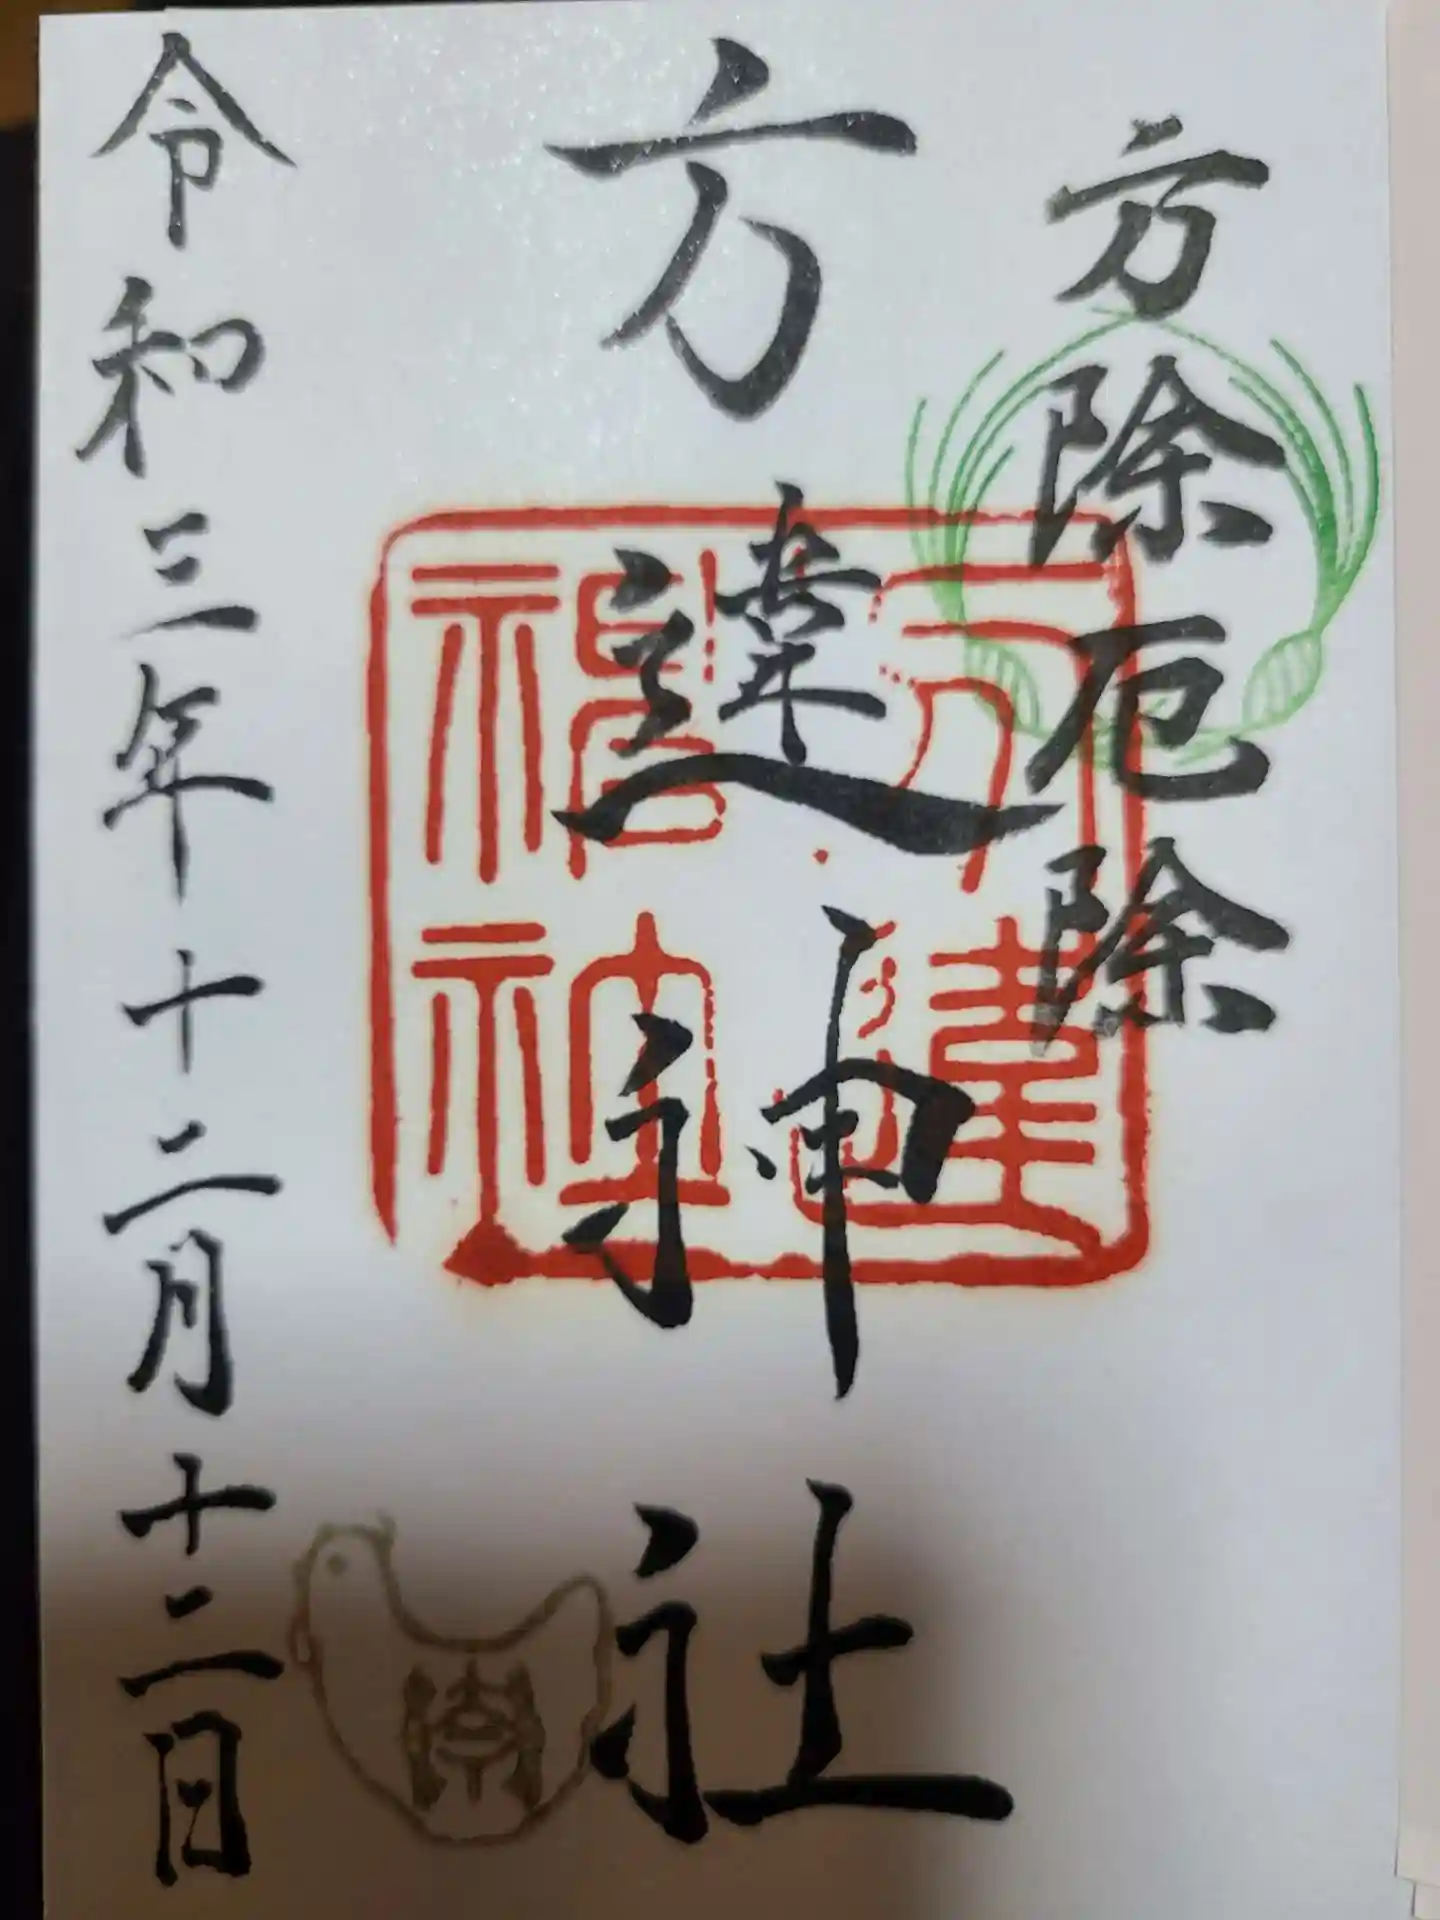 方除厄除
方違神社
方違神社
令和三年十二月十二日